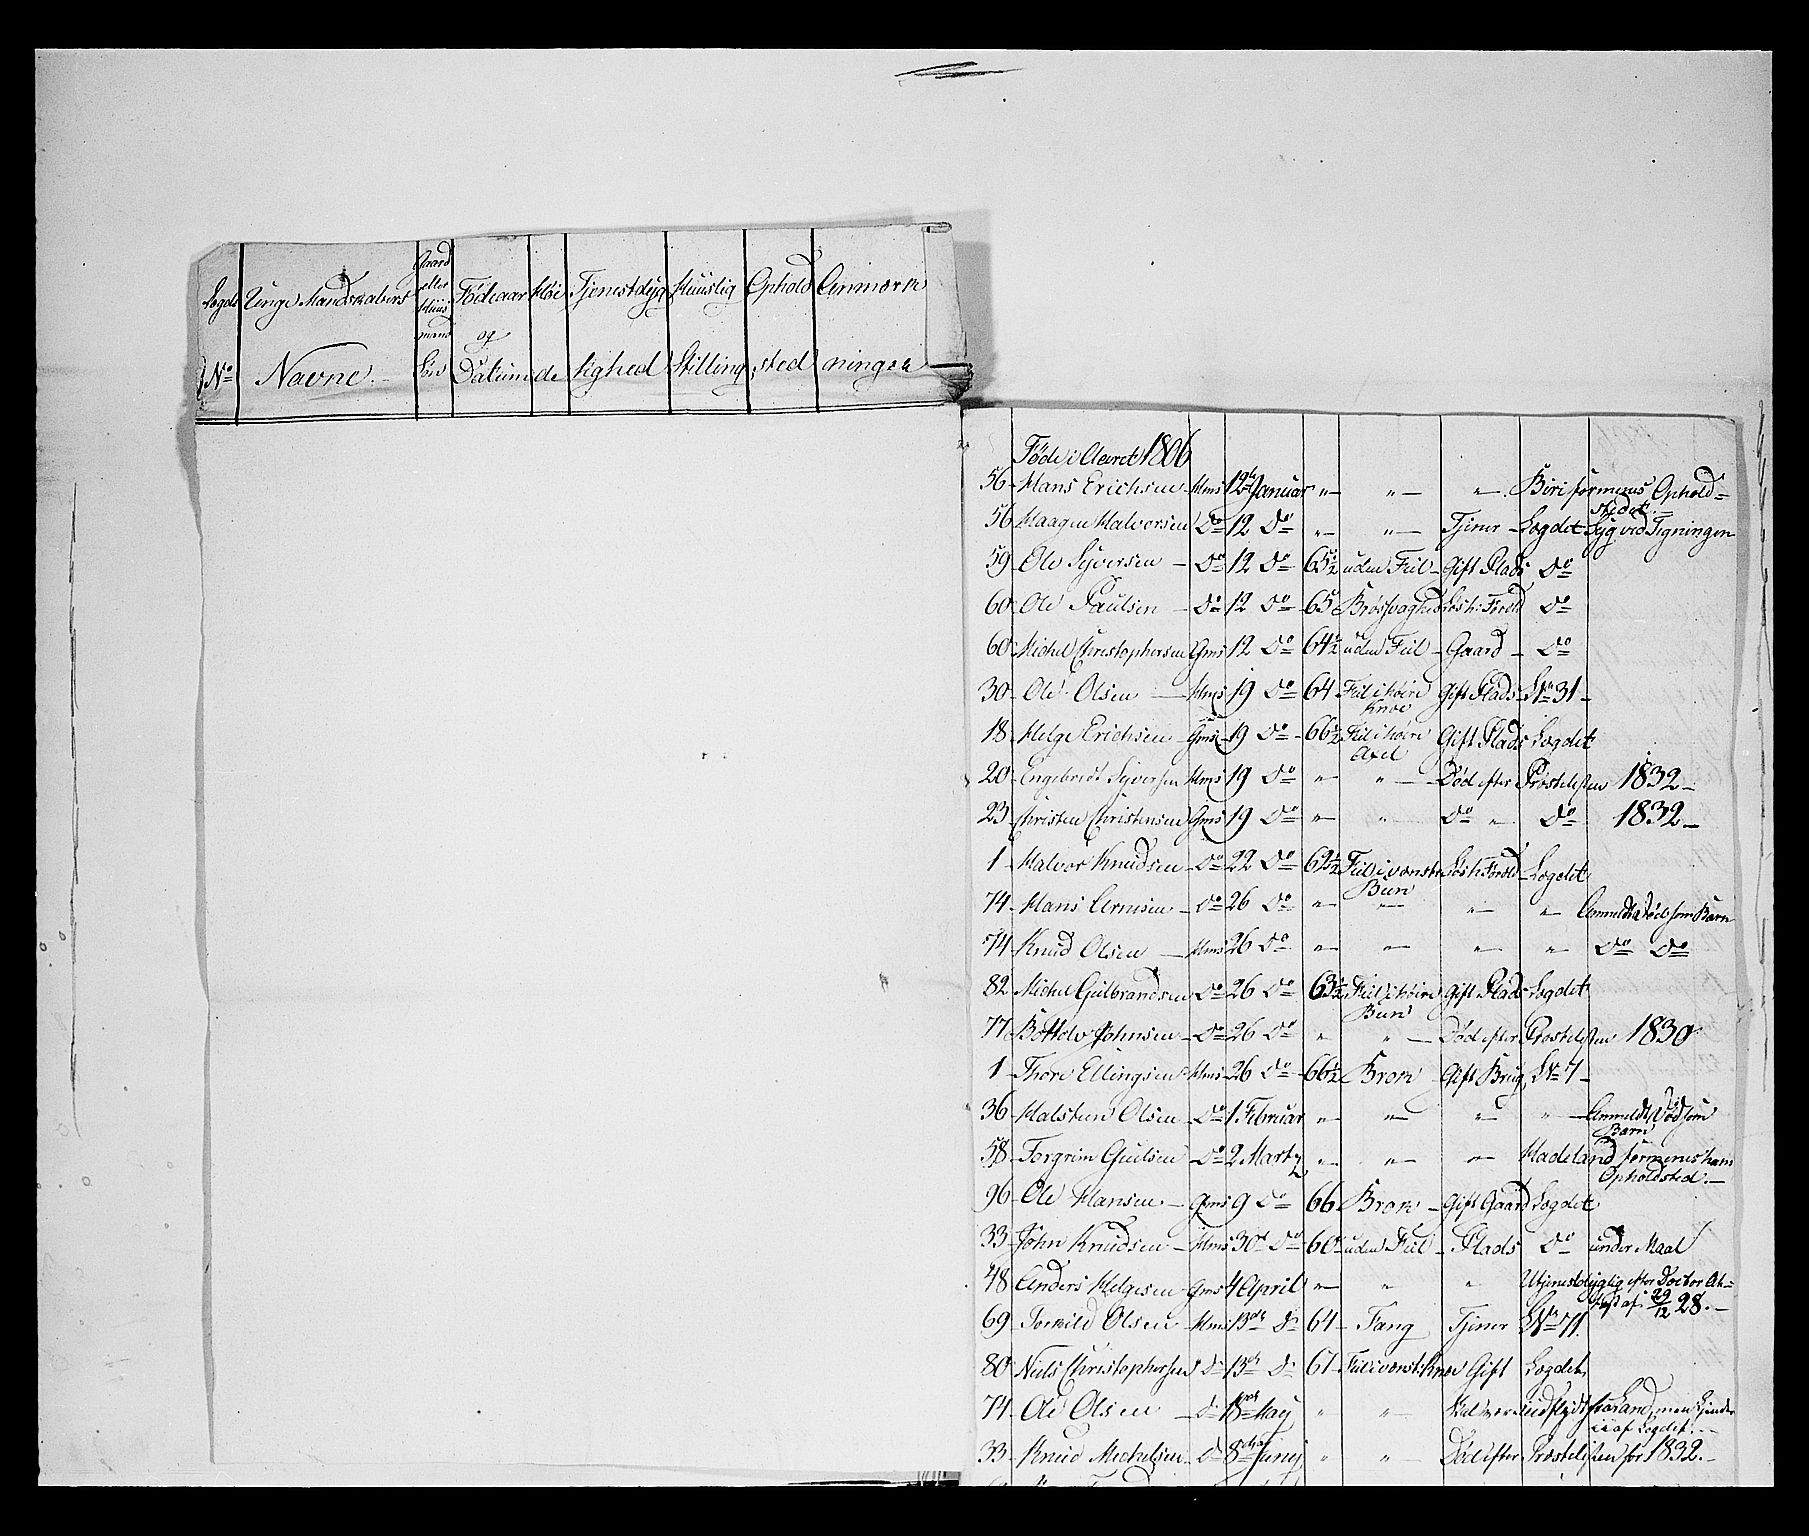 Lægds Unge Mandskabers Gaard eller Huus mand Fødeaar Høi Tjenestdyg Huuslig Ophold Anmærk
No Navne. Søn og Datum de tighed Stilling sted ninger
Føde i Aaret 1806
56 Hans Erichsen Hms 12te Januar " " " Biri formenes Ophold=
stedet.
56 Haagen Halvorsen Do 12 Do " " Tjener Lægdet Syg ved Tegningen
59 Ole Syversen Do 12 Do 65½ uden Feil Gift Plads Do
60 Ole Paulsen Do 12 Do 65 Brøstsvaghed Løs h: Forold Do
60 Michel Christophersen Gms 12 Do 64½ uden Feil Gaard Do
30 Ole Olsen Hms 19 Do 64 Feil i høire Gift Plads L No 31
Knæe
18 Helge Erichsen Gms 19 Do 66½ Feil i høire Gift Plads Lægdet
Axel
20 Engebret Syversen Hms 19 Do " " Død efter Præstelisten 1832
23 Christen Christensen Gms 19 Do " " Do " Do 1832
1 Halvor Knudsen Do 22 Do 62½ Feil i venstre Løs h Forold Lægdet
Been
74 Hans Arnesen Do 26 Do " " " " Anmeldt død som Barn
74 Knud Olsen Hms 26 Do " " " " Do Do
82 Michel Gulbrandsen Do 26 Do 63½ Feil i høire Gift Plads Lægdet
Been
77 Bottolv Johnsen Do 26 Do " " Død efter Præstelisten 1830
1 Thore Ellingsen Hms 26 Do 66½ Brok Gift Brug L No 7
36 Halsteen Olsen Do 1 Februar " " " " Anmeldt død som
Barn
58 Torgrim Guulsen Do 2 Martz " " " Hadeland formenes hans
Opholdsted.
96 Ole Hansen Gms 9 Do 66 Brok Gift Gaard Lægdet
33 John Knudsen Hms 30 Do 60 uden Feil Plads Do under Maal
48 Anders Helgesen Gms 4 April " " " Utjenstdygtig efter Doctor At=
test af 29/12 28.
69 Torkild Olsen Hms 13de Do 64 Tang Tjener L No 71.
80 Niels Christophersen Do 13de Do 67 Feil i venst: Knæe Gift Lægdet
74 Ole Olsen Do 18de May " " Skal være udflydt fra Land, men kjendes
ei af Lægdet.
33 Knud Michelsen Do 8de Junij " " Død efter Præstelisten for 1832.